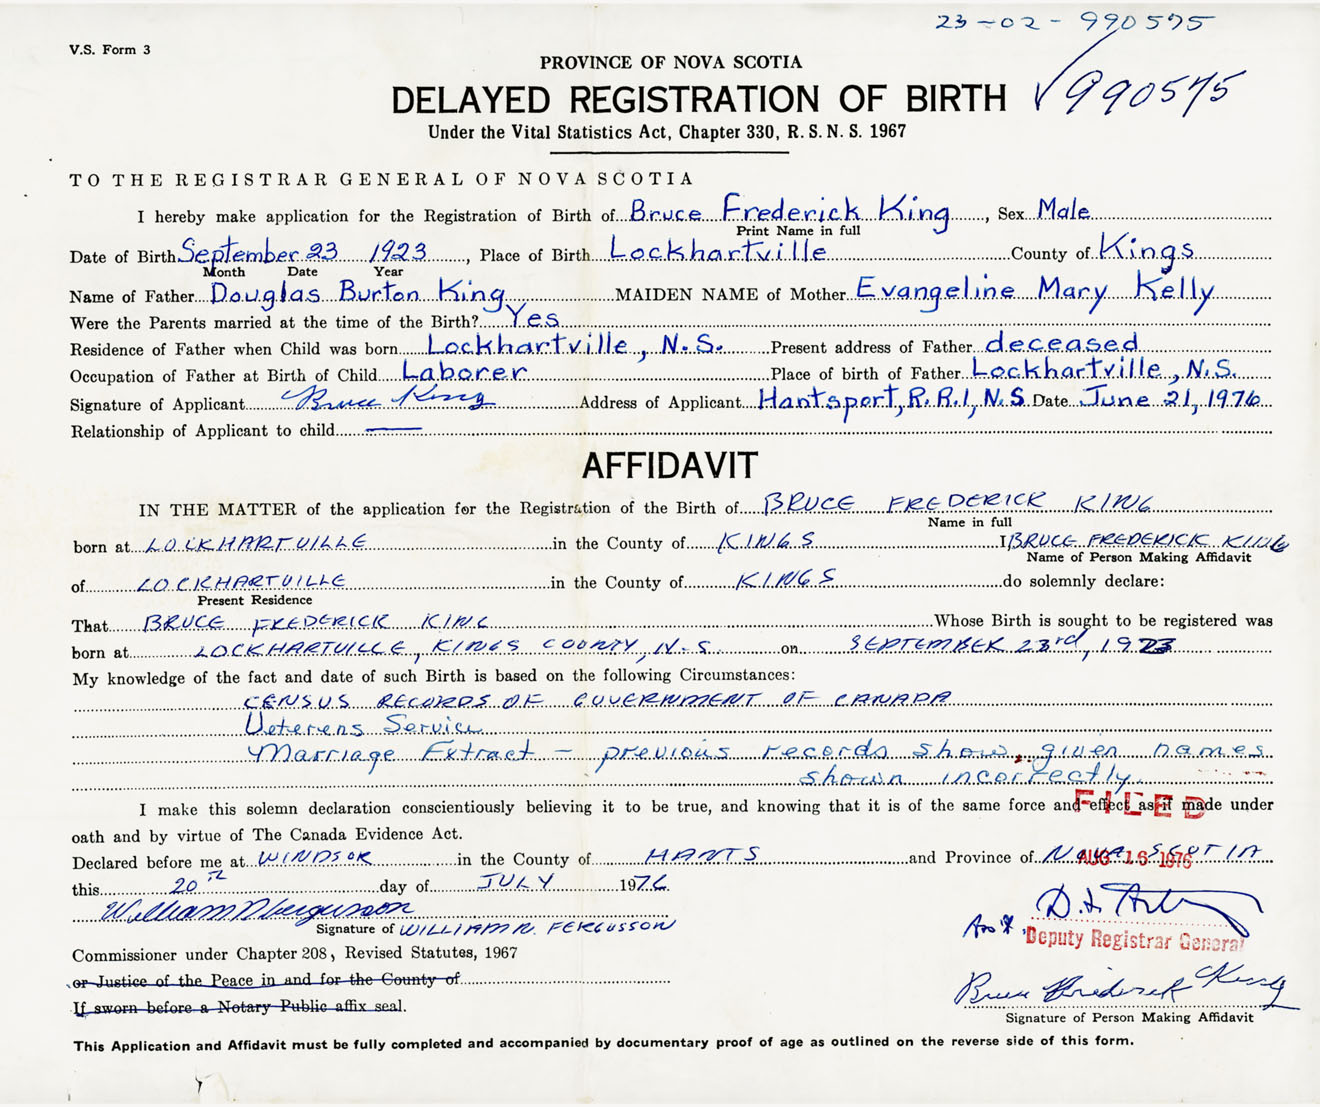 23-02-990575
V.S. Form 3
PROVINCE OF NOVA SCOTIA
DELAYED REGISTRATION OF BIRTH ✓990575
Under the Vital Statistics Act, Chapter 330, R.S.N.S. 1967
TO THE REGISTRAR GENERAL OF NOVA SCOTIA
I hereby make application for the Registration of Birth of Bruce Frederick King, Sex Male
Print Name in full
Date of Birth September 23 1923, Place of Birth Lockhartville County of Kings
Month Date Year
Name of Father Douglas Burton King MAIDEN NAME of Mother Evangeline Mary Kelly
Were the Parents married at the time of the Birth? Yes
Residence of Father when Child was born Lockhartville, N.S. Present address of Father deceased
Occupation of Father at Birth of Child Laborer Place of birth of Father Lockhartville, N.S.
Signature of Applicant Bruce King Address of Applicant Hantsport, R.R.1, N.S. Date June 21, 1976
Relationship of Applicant to child —
AFFIDAVIT
IN THE MATTER of the application for the Registration of the Birth of BRUCE FREDERICK KING
Name in full
born at LOCKHARTVILLE in the County of KINGS I BRUCE FREDERICK KING
Name of Person Making Affidavit
of LOCKHARTVILLE in the County of KINGS do solemnly declare:
Present Residence
That BRUCE FREDERICK KING Whose Birth is sought to be registered was
born at LOCKHARTVILLE, KINGS COUNTY, N.S. on SEPTEMBER 23rd, 1923
My knowledge of the fact and date of such Birth is based on the following Circumstances:
CENSUS RECORDS OF GOVERNMENT OF CANADA
Veterens Service
Marriage Extract - previous records show given names
shown incorrectly.
I make this solemn declaration conscientiously believing it to be true, and knowing that it is of the same force and effect as if made under
FILED
oath and by virtue of The Canada Evidence Act.
Declared before me at WINDSOR in the County of HANTS and Province of NOVA SCOTIA
AUG 16 1976
this 20TH day of JULY 1976
William N Fergusson
Signature of WILLIAM N. FERGUSSON
Deputy Registrar General
Commissioner under Chapter 208, Revised Statutes, 1967
or Justice of the Peace in and for the County of
Bruce Frederick King
If sworn before a Notary Public affix seal.
Signature of Person Making Affidavit
This Application and Affidavit must be fully completed and accompanied by documentary proof of age as outlined on the reverse side of this form.